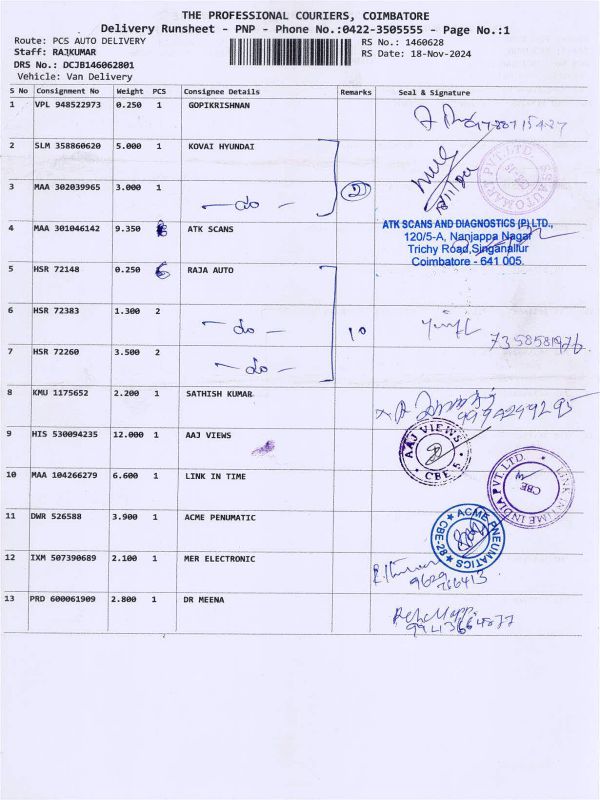 THE PROFESSIONAL COURIERS, COIMBATORE
Delivery Runsheet - PNP - Phone No.:0422-3505555 - Page No.:1
Route: PCS AUTO DELIVERY RS No.: 1460628
Staff: RAJKUMAR RS Date: 18-Nov-2024
DRS No.: DCJB146062801
Vehicle: Van Delivery
S No Consignment No Weight PCS Consignee Details Remarks Seal & Signature
1 VPL 948522973 0.250 1 GOPIKRISHNAN
2 SLM 358860620 5.000 1 KOVAI HYUNDAI
3 MAA 302039965 3.000 1 - do - 2
4 MAA 301046142 9.350 ATK SCANS
ATK SCANS AND DIAGNOSTICS (P) LTD.,
120/5-A, Nanjappa Nagar
Trichy Road, Singanallur
Coimbatore - 641 005.
5 HSR 72148 0.250 6 RAJA AUTO
6 HSR 72383 1.300 2 - do - 10
7358581976
7 HSR 72260 3.500 2 - do -
8 KMU 1175652 2.200 1 SATHISH KUMAR
9942499295
9 HIS 530094235 12.000 1 AAJ VIEWS
AAJ VIEWS
CBE-5
10 MAA 104266279 6.600 1 LINK IN TIME
LINK INTIME INDIA PVT. LTD
CBE
11 DWR 526588 3.900 1 ACME PENUMATIC
ACME PNEUMATICS
CBE-28
12 IXM 507390689 2.100 1 MER ELECTRONIC
9629
766413
13 PRD 600061909 2.800 1 DR MEENA